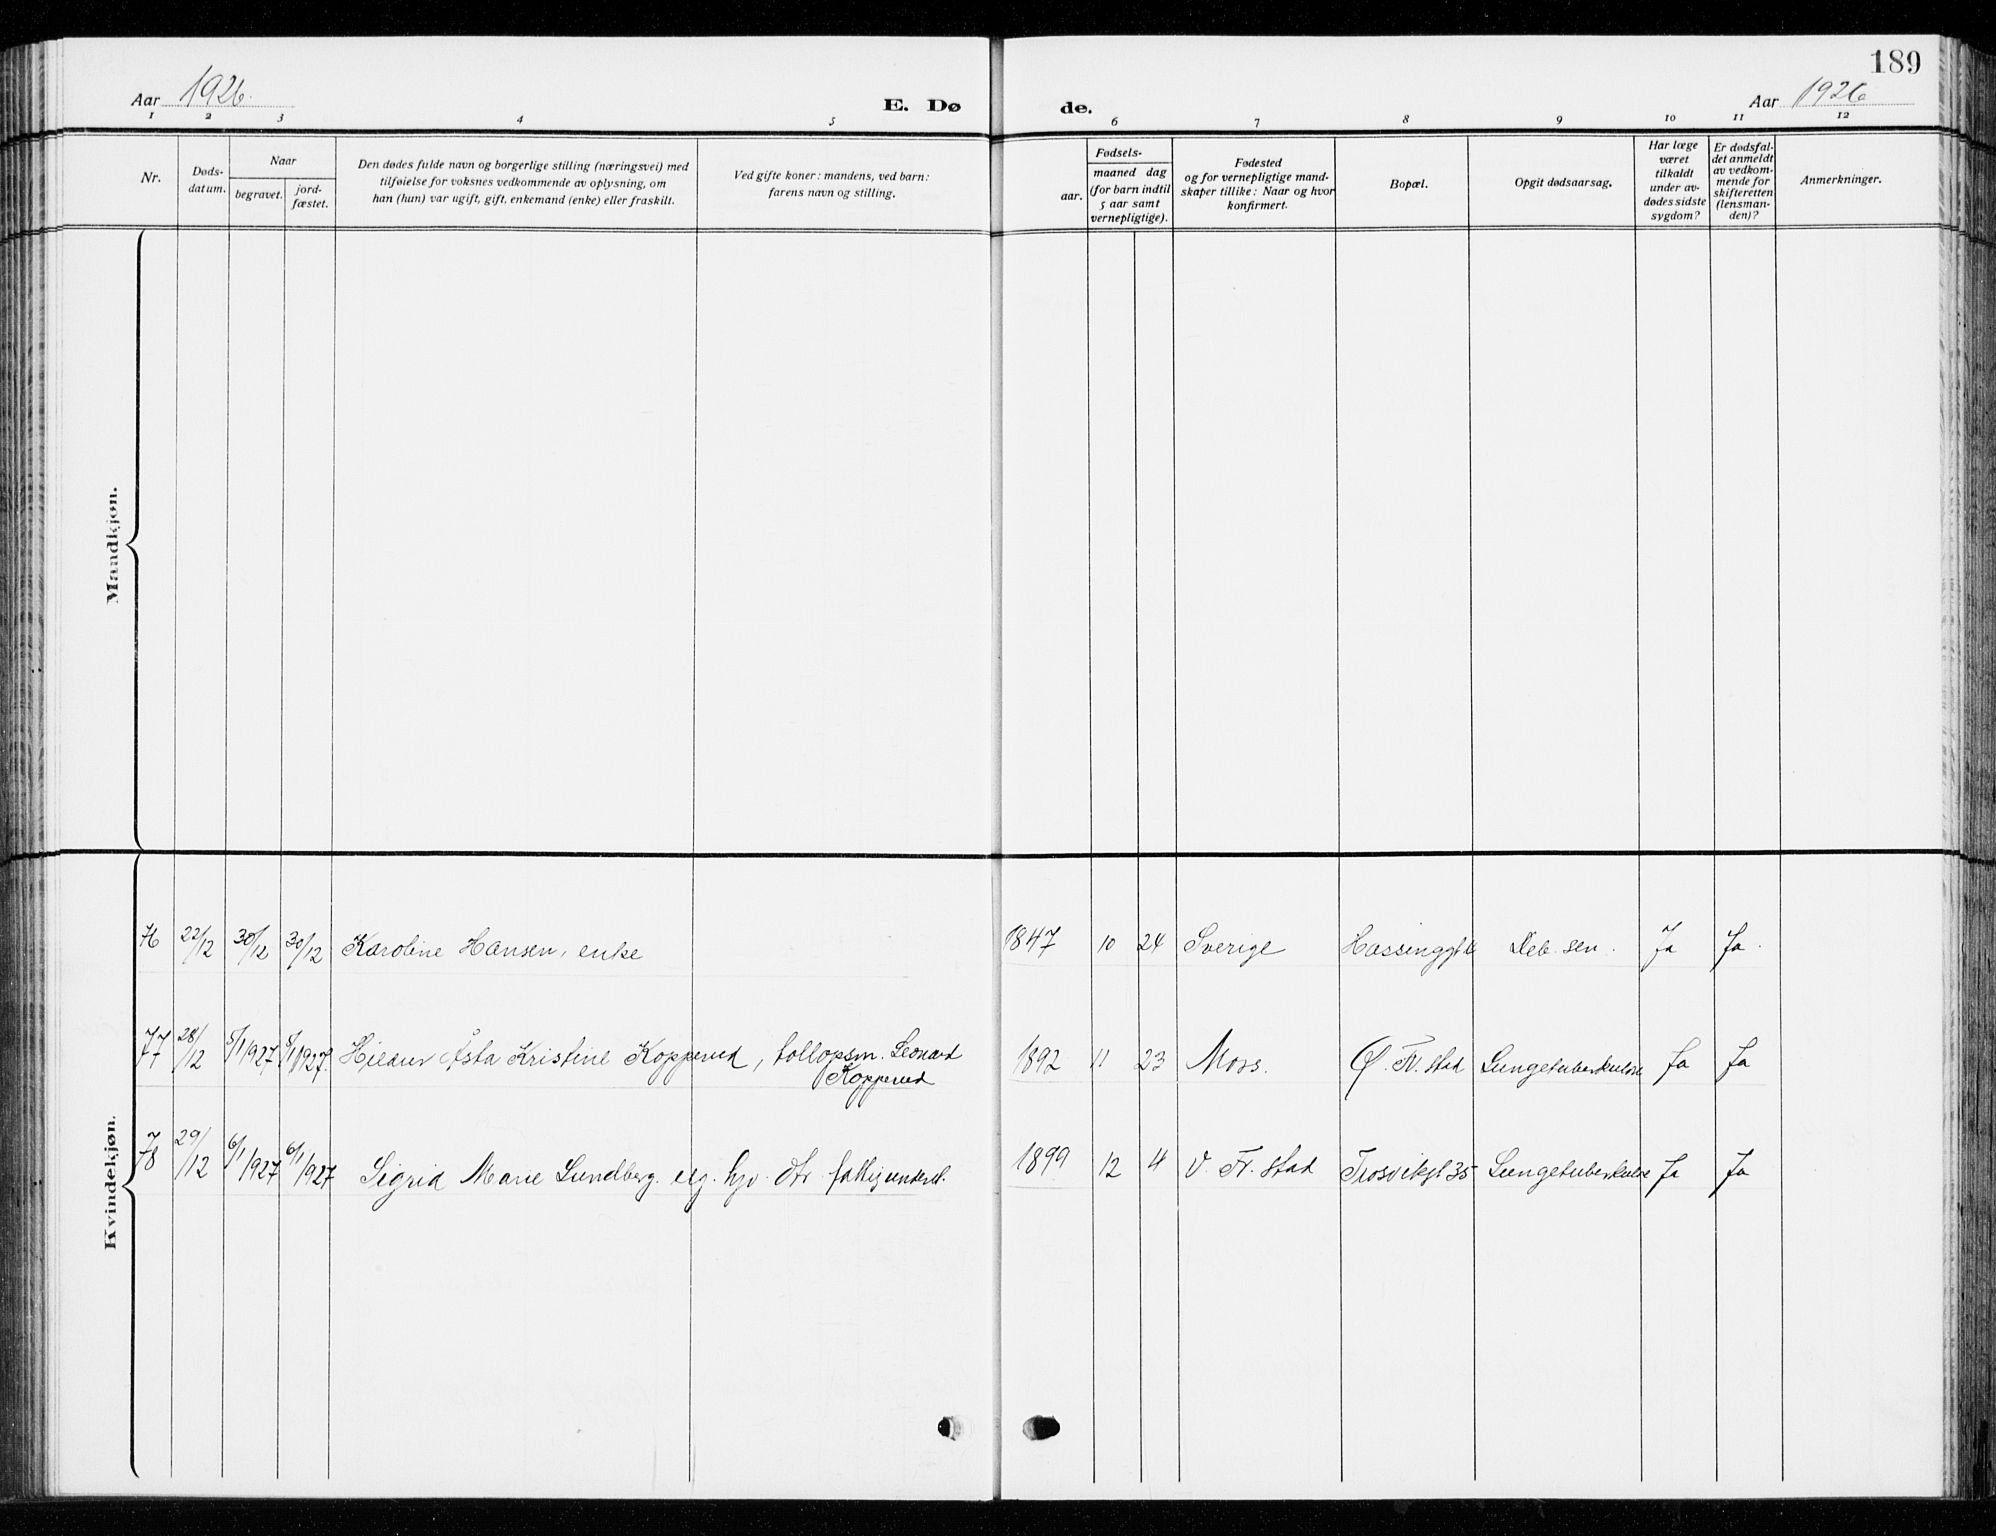 189
Aar 1926.
E. Dø
de.
Aar 1926
1 2 3 4 5 6 7 8 9 10 11 12
Nr.
Døds-
datum.
Naar
begravet.
jord-
fæstet.
Den dødes fulde navn og borgerlige stilling (næringsvei) med
tilføielse for voksnes vedkommende av oplysning, om
han (hun) var ugift, gift, enkemand (enke) eller fraskilt.
Ved gifte koner: mandens, ved barn:
farens navn og stilling.
aar.
Fødsels-
maaned dag
(for barn indtil
5 aar samt
vernepligtige).
Fødested
og for vernepligtige mand-
skaper tillike: Naar og hvor
konfirmert.
Bopæl.
Opgit dødsaarsag.
Har læge
været
tilkaldt
under av-
dødes sidste
sygdom?
Er dødsfal-
det anmeldt
av vedkom-
mende for
skifteretten
(lensman-
den)?
Anmerkninger.
Mandkjøn.
Kvindekjøn.
76 22/12 30/12 30/12 Karoline Hansen, enke 1847 10 24 Sverige Deb. sen. Ja Ja.
77 28/12 5/1 1927 5/1 1927. Åsta Kristine Kopperud, tollopsm. Leonard 1892 11 23 Moss. Ø. Fr. stad Lungetuberkulose Ja Ja
Kopperud
78 29/12 6/1 1927 6/1 1927 Sigrid Marie Lundberg. ug. hjv. dtr. fattigunderst. 1899 12 4 V. Fr. stad Trosvikgt 35 Lungetuberkulose Ja Ja